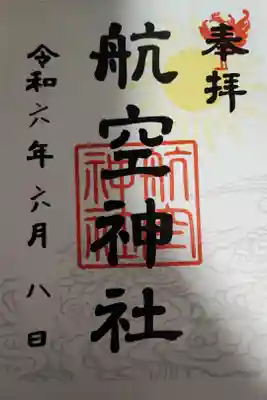 奉拝
航空神社
航空神社
令和六年六月八日